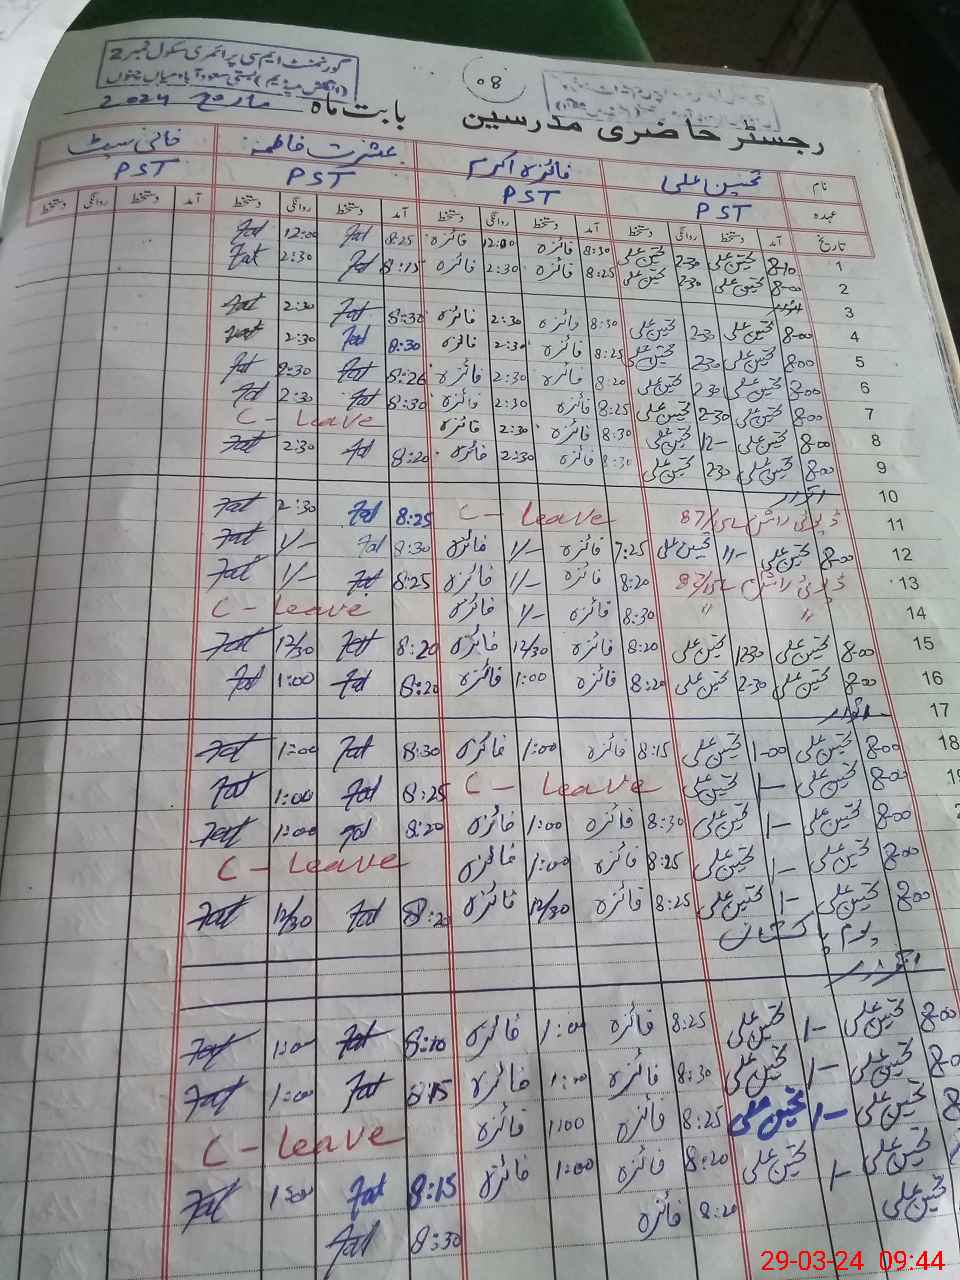 گورنمنٹ ایم سی پرائمری سکول نمبر 2
(انگلش میڈیم) بستی سعود آباد میاں چنوں
08
رجسٹر حاضری مدرسین بابت ماہ مارچ 2024
نام تحسین علی فائزہ اکرم عشرت فاطمہ خالی سیٹ
عہدہ PST PST PST PST
تاریخ آمد دستخط روانگی دستخط آمد دستخط روانگی دستخط آمد دستخط روانگی دستخط آمد دستخط روانگی دستخط
1 8:10 تحسین علی 2:30 تحسین علی 8:30 فائزہ 12:00 فائزہ 8:25 Fat 12:00 Fat
2 8:00 تحسین علی 2:30 تحسین علی 8:25 فائزہ 2:30 فائزہ 8:15 Fat 2:30 Fat
3 اتوار
4 8:00 تحسین علی 2:30 تحسین علی 8:30 فائزہ 2:30 فائزہ 8:30 Fat 2:30 Fat
5 8:00 تحسین علی 2:30 تحسین علی 8:25 فائزہ 2:30 فائزہ 8:30 Fat 2:30 Fat
6 8:00 تحسین علی 2:30 تحسین علی 8:20 فائزہ 2:30 فائزہ 8:26 Fat 2:30 Fat
7 8:00 تحسین علی 2:30 تحسین علی 8:25 فائزہ 2:30 فائزہ 8:30 Fat 2:30 Fat
8 8:00 تحسین علی 12/- تحسین علی 8:30 فائزہ 2:30 فائزہ C - Leave
9 8:00 تحسین علی 2:30 تحسین علی 8:30 فائزہ 2:30 فائزہ 8:20 Fat 2:30 Fat
10 اتوار
11 ڈیوٹی راشن C - Leave 8:25 Fat 2:30 Fat
12 8:00 تحسین علی 1/- تحسین علی 7:25 فائزہ 1/- فائزہ 8:30 Fat 1/- Fat
13 ڈیوٹی راشن 8:20 فائزہ 1/- فائزہ 8:25 Fat 1/- Fat
14 〃 〃 8:30 فائزہ 1/- فائزہ C - Leave
15 8:00 تحسین علی 12:30 تحسین علی 8:20 فائزہ 12/30 فائزہ 8:20 Fat 12/30 Fat
16 8:00 تحسین علی 2:30 تحسین علی 8:20 فائزہ 1:00 فائزہ 8:20 Fat 1:00 Fat
17 اتوار
18 8:00 تحسین علی 1:00 تحسین علی 8:15 فائزہ 1:00 فائزہ 8:30 Fat 1:00 Fat
8:00 تحسین علی 1- تحسین علی C - Leave 8:25 Fat 1:00 Fat
8:00 تحسین علی 1- تحسین علی 8:30 فائزہ 1:00 فائزہ 8:20 Fat 1:00 Fat
8:00 تحسین علی 1- تحسین علی 8:25 فائزہ 1:00 فائزہ C - Leave
8:00 تحسین علی 1- تحسین علی 8:25 فائزہ 12/30 فائزہ 8:20 Fat 12/30 Fat
یوم پاکستان
اتوار
8:00 تحسین علی 1- تحسین علی 8:25 فائزہ 1:00 فائزہ 8:10 Fat 1:00 Fat
تحسین علی 1- تحسین علی 8:30 فائزہ 1:00 فائزہ 8:15 Fat 1:00 Fat
تحسین علی 1- تحسین علی 8:25 فائزہ 1:00 فائزہ C - Leave
تحسین علی 1- تحسین علی 8:20 فائزہ 1:00 فائزہ 8:15 Fat 1:00 Fat
تحسین علی 8:20 فائزہ 8:30 Fat
29-03-24 09:44